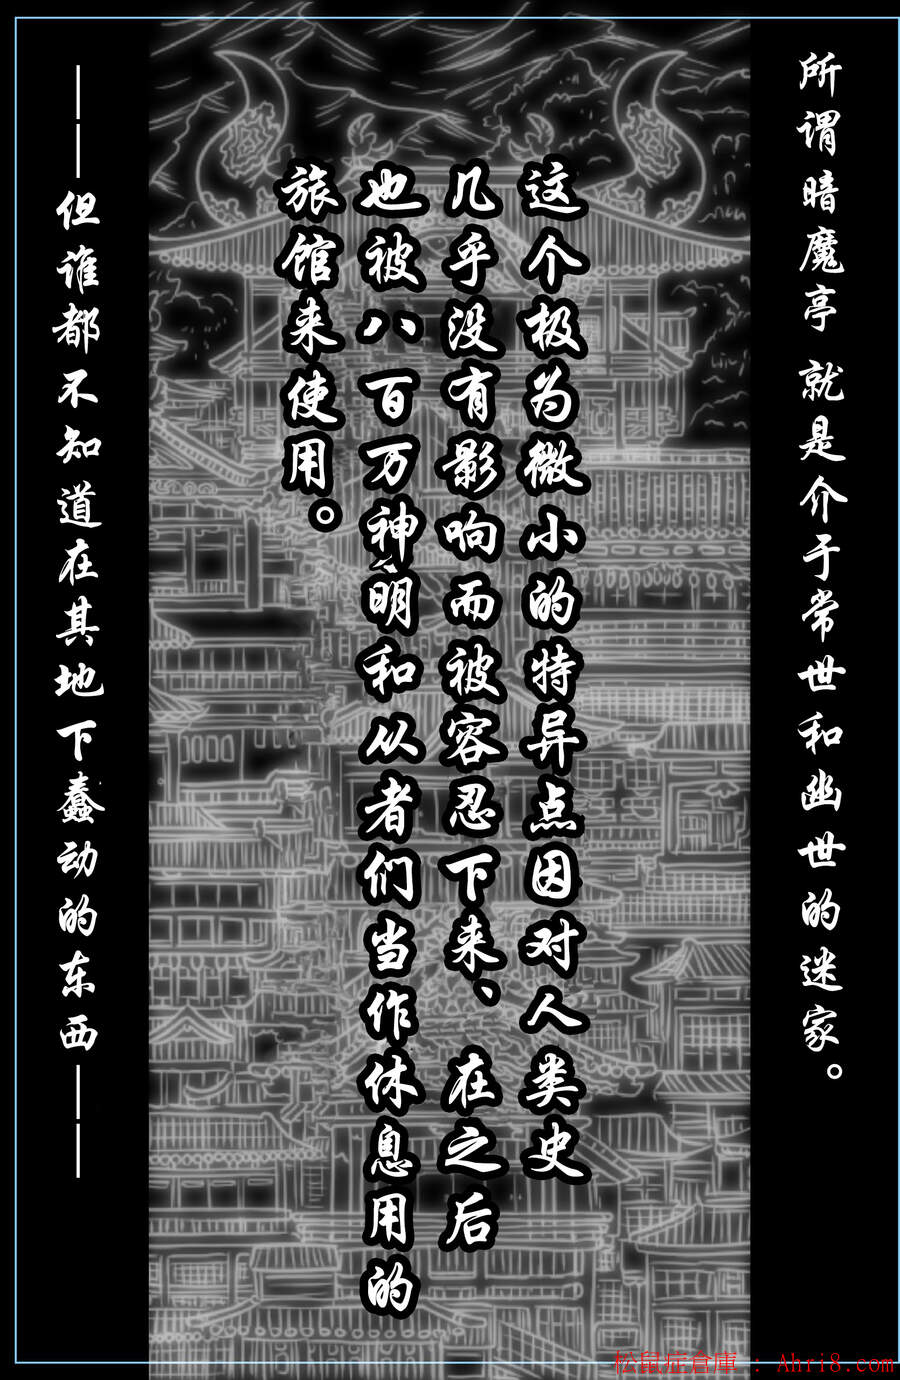 所谓暗魔亭 就是介于常世和幽世的迷家。
这个极为微小的特异点因对人类史
几乎没有影响而被容忍下来、在之后
也被八百万神明和从者们当作休息用的
旅馆来使用。
——但谁都不知道在其地下蠢动的东西——
松鼠症倉庫 : Ahri8.com